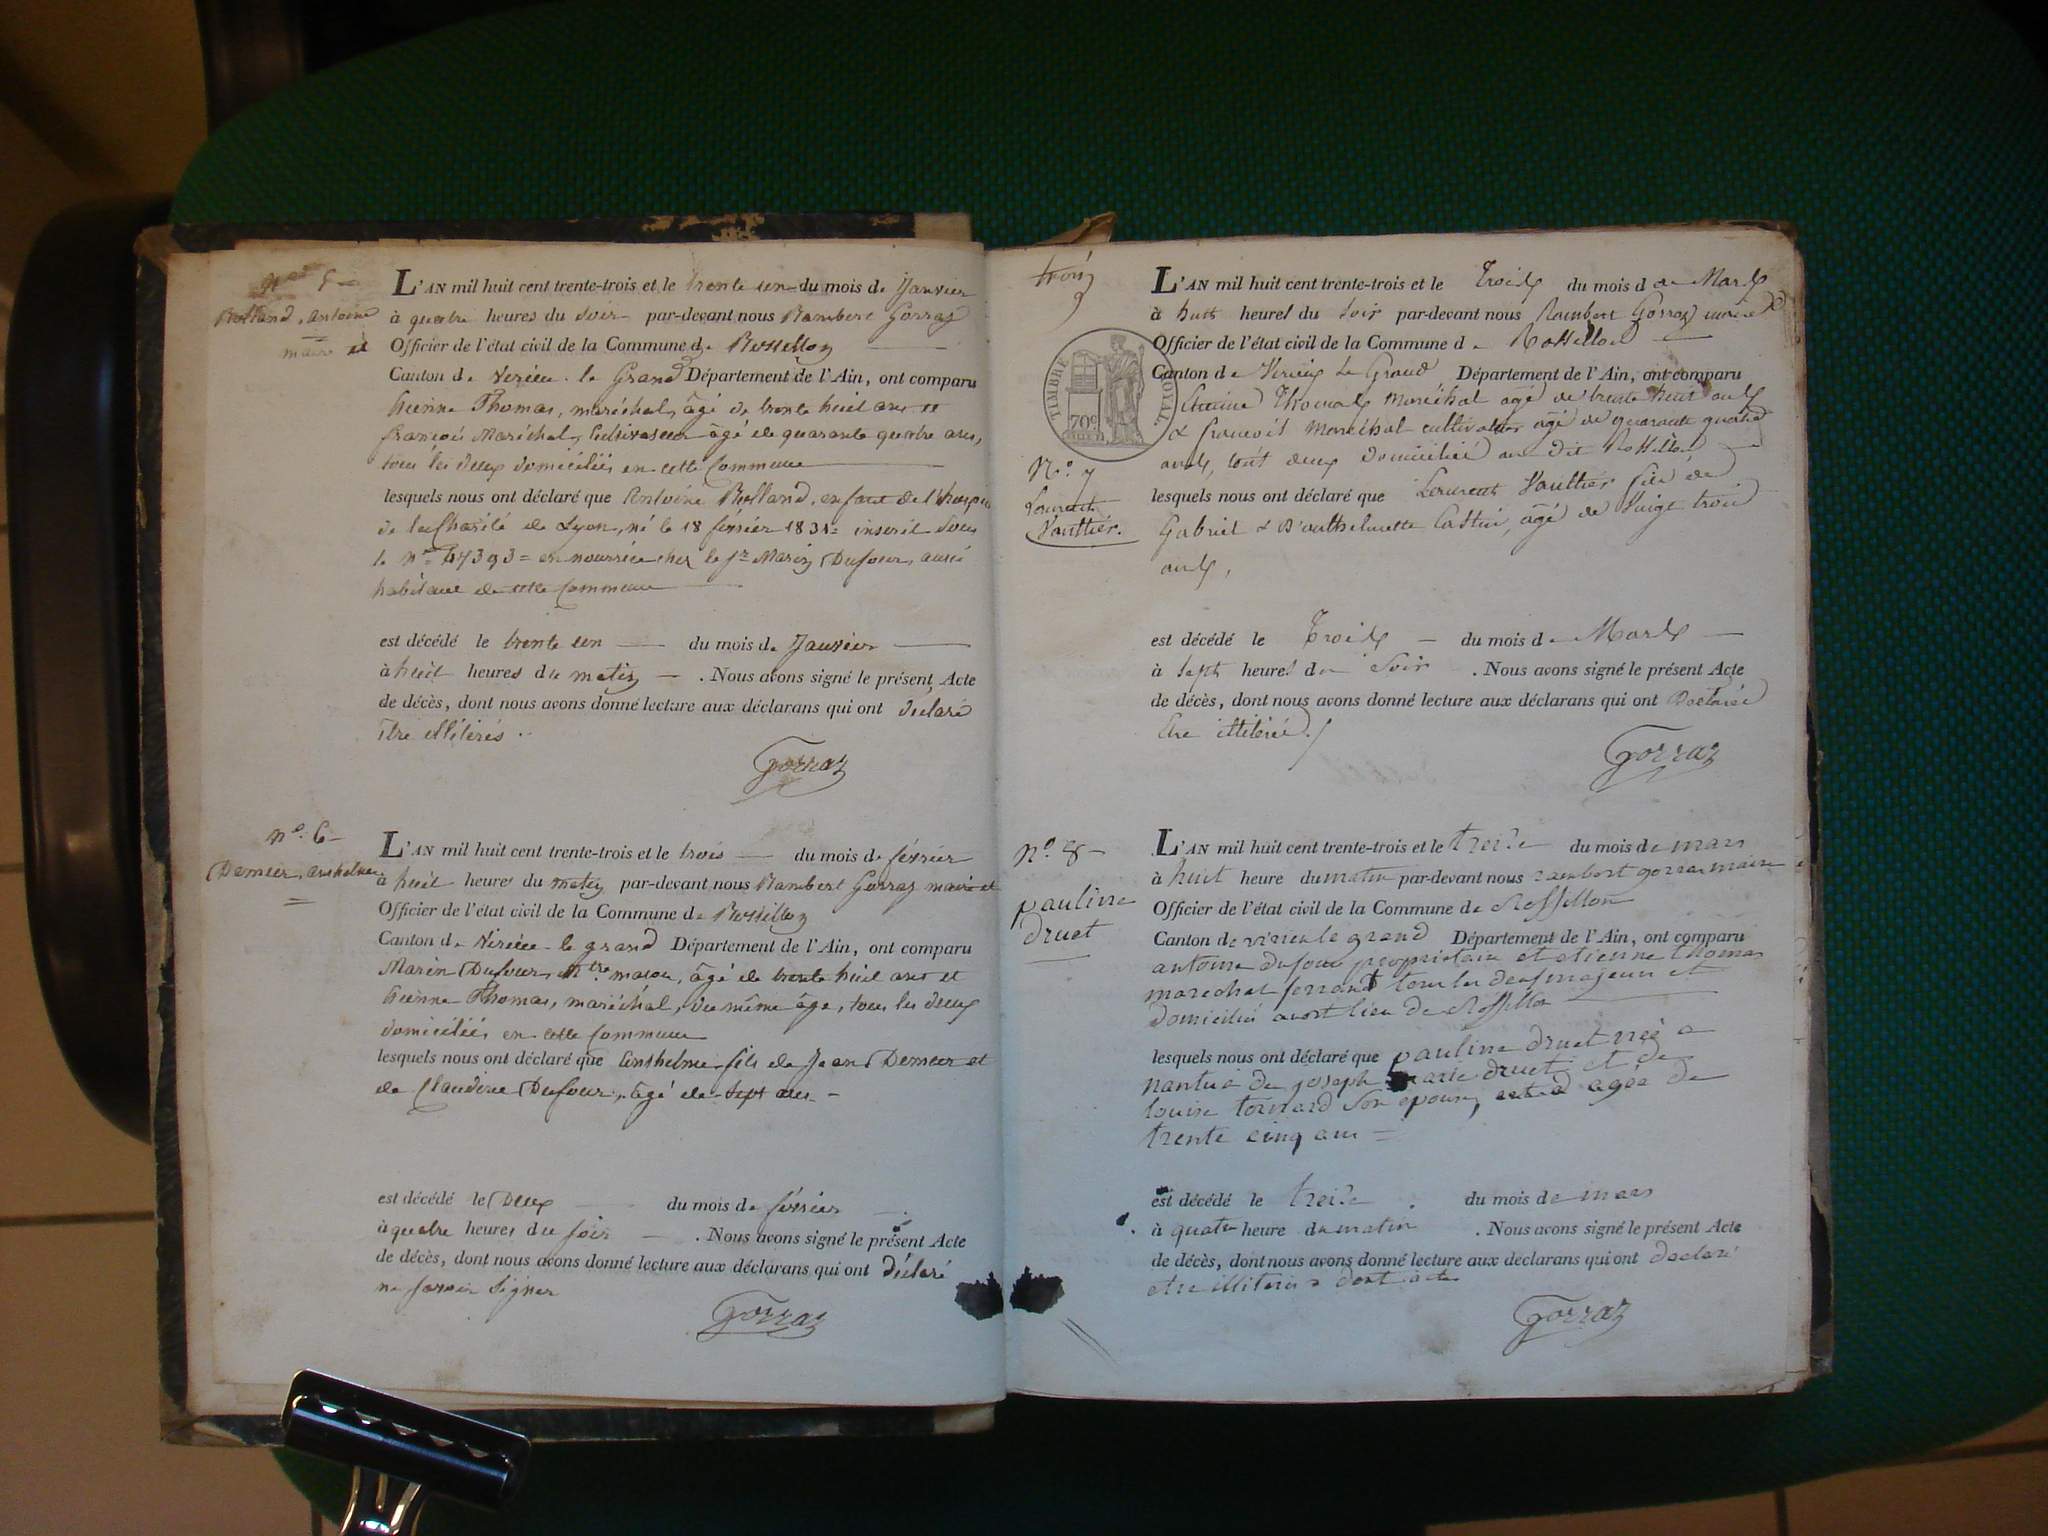 N° 5
Rolland, Antoine
maire et
L'AN mil huit cent trente-trois et le trente un du mois de Janvier
à quatre heures du soir par-devant nous Rambert Gorraz
Officier de l'état civil de la Commune de Rossillon
Canton de Virieu le Grand Département de l'Ain, ont comparu
Etienne Thomas, maréchal, âgé de trente huit ans et
françois Maréchal, Cultivateur âgé de quarante quatre ans,
tous les deux domiciliés en cette Commune
lesquels nous ont déclaré que Antoine Rolland, enfant de l'hospice
de la Charité de Lyon, né le 18 février 1831 = inscrit sous
le N° 47393 = en nourrice chez le Sr Marin Dufour, aussi
habitant de cette Commune
est décédé le trente un du mois de Janvier
à huit heures du matin . Nous avons signé le présent Acte
de décès, dont nous avons donné lecture aux déclarans qui ont déclaré
être illitérés
Gorraz
N° 6
Demeer, anthelme
L'AN mil huit cent trente-trois et le trois du mois de février
à huit heures du matin par-devant nous Rambert Gorraz maire et
Officier de l'état civil de la Commune de Rossillon
Canton de Virieu le grand Département de l'Ain, ont comparu
Marin Dufour, Mtre maçon, âgé de trente huit ans et
Etienne Thomas, maréchal, du même âge, tous les deux
domiciliés en cette Commune
lesquels nous ont déclaré que Anthelme fils de Jean Demeer et
de Claudine Dufour, âgé de sept ans
est décédé le Deux du mois de février
à quatre heures du soir . Nous avons signé le présent Acte
de décès, dont nous avons donné lecture aux déclarans qui ont déclaré
ne savoir signer
Gorraz
trois
TIMBRE ROYAL
70c
N° 7
Laurent
Vauthier.
L'AN mil huit cent trente-trois et le Trois du mois d de Mars
à huit heures du soir par-devant nous Rambert Gorraz maire
Officier de l'état civil de la Commune d Rossillon
Canton de Virieu Le Grand Département de l'Ain, ont comparu
Etienne Thomas Maréchal âgé de trente huit ans
& francois maréchal cultivateur âgé de quarante quatre
ans, tous deux Domicilié au dit Rossillon
lesquels nous ont déclaré que Laurent Vauthier fils de
Gabriel & Bauthelmette âgé de Vuigt trois
ans,
est décédé le Trois du mois de Mars
à sept heures du Soir . Nous avons signé le présent Acte
de décès, dont nous avons donné lecture aux déclarans qui ont Déclaré
être illitéré.
Gorraz
N° 8
pauline
druet
L'AN mil huit cent trente-trois et le treize du mois de mars
à huit heure du matin par-devant nous rambert gorraz maire
Officier de l'état civil de la Commune de Rossillon
Canton de virieu le grand Département de l'Ain, ont comparu
antoine dufour propriétaire et etienne thomas
marechal ferrant tous les deux majeurs et
domiciliés audit lieu de Rossillon
lesquels nous ont déclaré que pauline druet née a
nantua de joseph marie druet et de
louise tornard son epouse, agée de
trente cinq ans
est décédé le treize du mois de mars
à quatre heure du matin . Nous avons signé le présent Acte
de décès, dont nous avons donné lecture aux declarans qui ont declaré
etre illiterés dont acte
Gorraz